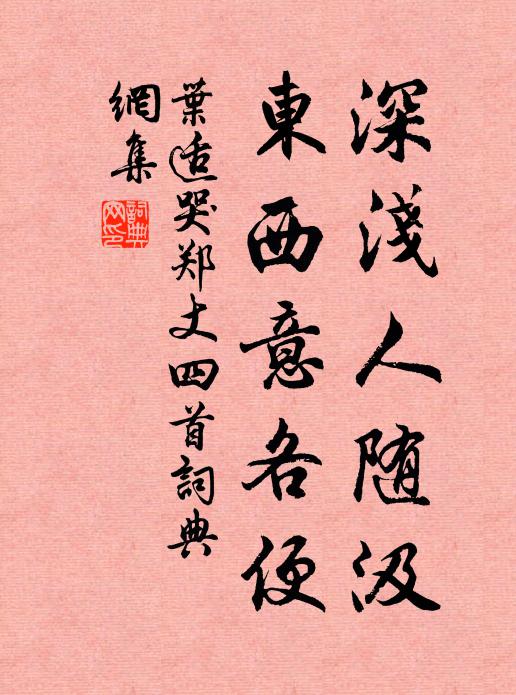 深淺人随汲
東西意各便
葉适哭郑丈四首詞典
網集
詞典
网印